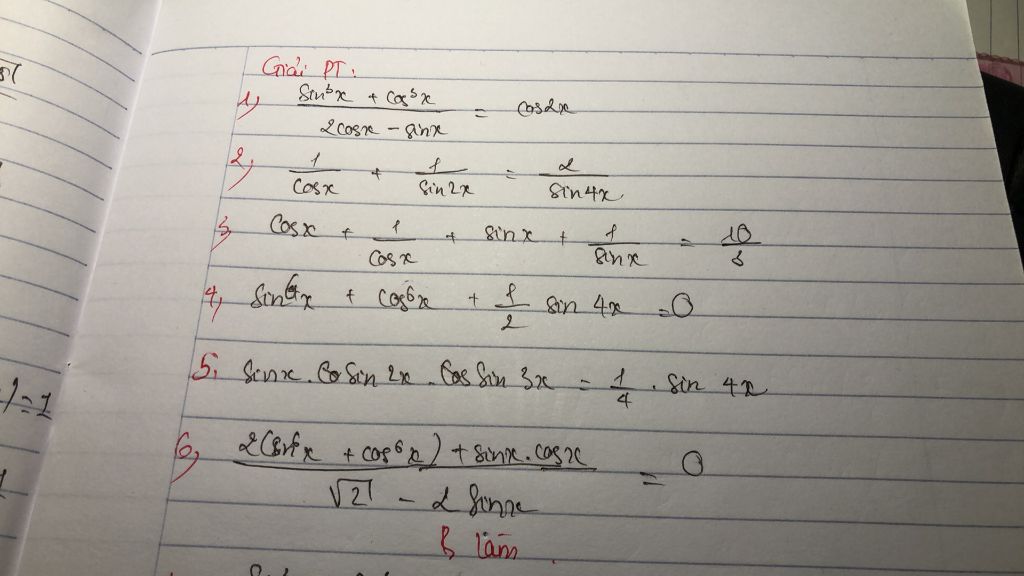 Giải PT:
1, (sin³x + cos³x)/(2cosx - sinx) = cos2x
2, 1/cosx + 1/sin2x = 2/sin4x
3 cosx + 1/cosx + sinx + 1/sinx = 10/3
4, sin⁶x + cos⁶x + 1/2 sin 4x = 0
5, sinx. Cosin 2x. Cos sin 3x = 1/4 . sin 4x
6, (2(sin⁶x + cos⁶x) + sinx.cosx)/(√2 - 2 sinx) = 0
làm